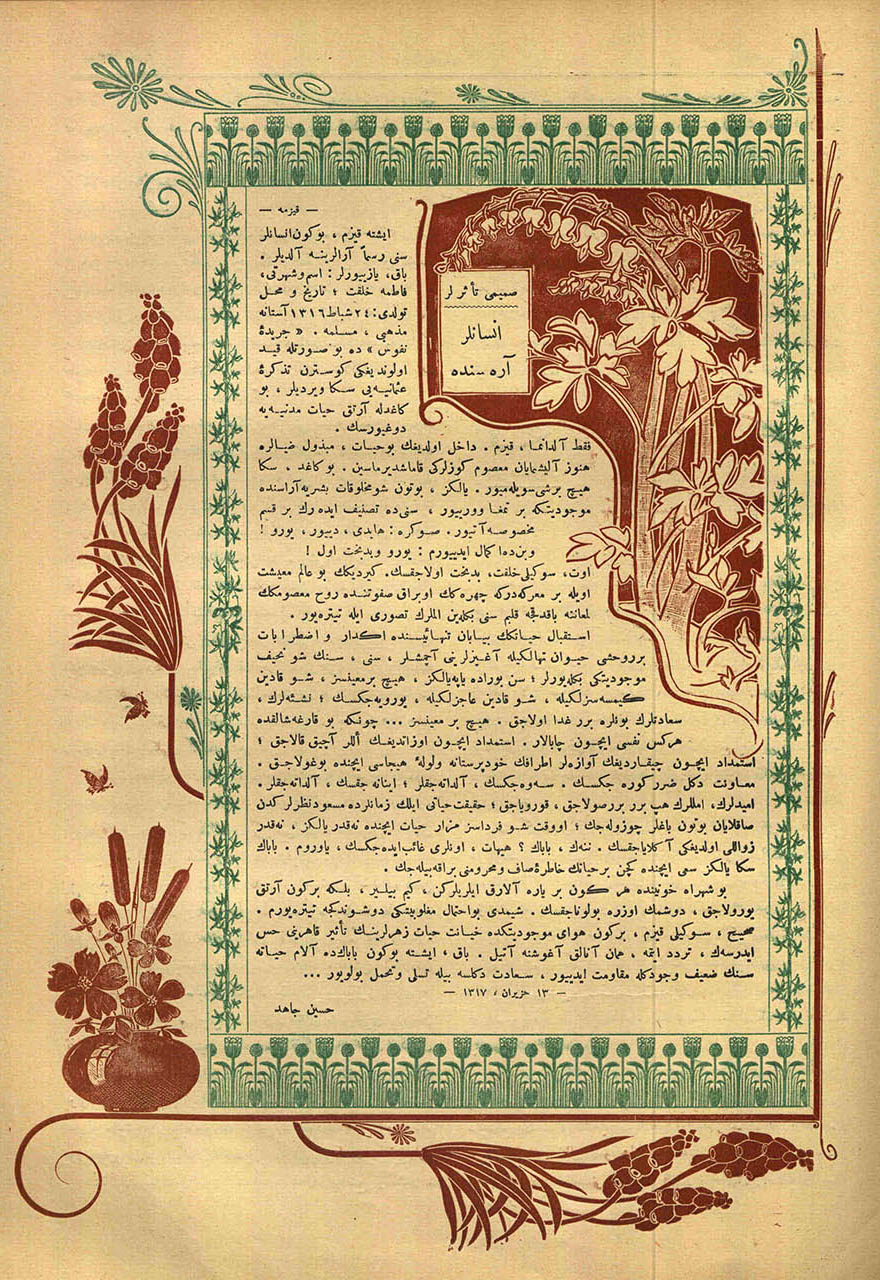 صمیمی تأثرلر
انسانلر
آره‌سنده
— قیزمه —
ایشته قیزم ، بوكون انسانلر
سنی رسماً آرالرینه آلدیلر .
باق، یازییورلر : اسم و شهرتی،
فاطمه خلقت ؛ تاریخ و محل
تولدی: ٢٤ شباط ١٣١٦ آستانه
مذهبی ، مسلمه . « جریدهٔ
نفوس » ده بو صورتله قید
اولوندیغكی كوسترن تذكرهٔ
عثمانیه‌یی سكا ویردیلر ، بو
كاغدله آرتق حیات مدنیه‌یه
دوغیورسك .
فقط آلدانما ، قیزم . داخل اولدیغك بوحیات ، مبذول ضیالره
هنوز آلیشمایان معصوم كوزلركی قاماشدیرماسین . بو كاغد ، سكا
هیچ برشی سویله‌میور . یالكز ، بوتون شو مخلوقات بشریه آراسنده
موجودیتكه بر تمغا وورییور ، سنی ده تصنیف ایده‌رك بر قسم
مخصوصه آتیور . صوكره : هایدی ، دییور ، یورو !
وبن ده اكمال ایدییورم : یورو وبدبخت اول !
اوت، سوكیلی خلقت، بدبخت اولاجقسك. كیردیكك بو عالم معیشت
اویله بر معركه‌دركه چهره‌كك او براق صفوتنده روح معصومكك
لمعاننه باقدقجه قلبم سنی بكله‌ین الملرك تصوری ایله تیتره‌یور .
استقبال حیاتكك بیابان تنهائیسنده اكدار و اضطرابات
بروحشی حیوان تهالكیله آغیزلرینی آچمشلر ، سنی ، سنك شو نحیف
موجودیتكی بكله‌یورلر ؛ سن بوراده یاپه‌یالكز ، هیچ برمعینسز ، شو قادین
كیمسه‌سزلكیله ، شو قادین عاجزلكیله ، یورویه‌جكسك ؛ نشئه‌لرك ،
سعادتلرك بونلره برر غدا اولاجق . هیچ بر معینسز ... چونكه بو قارغه‌شالقده
هركس نفسی ایچون چابالار . استمداد ایچون اوزاتدیغك أللر آچیق قالاجق ؛
استمداد ایچون چیقاردیغك آوازه‌لر اطرافك خودپرستانه ولولهٔ هیجاسی ایچنده بوغولاجق .
معاونت دكل ضرر كوره جكسك . سه‌وه‌جكسك ، آلداته‌جقلر ؛ اینانه جقسك ، آلداته‌جقلر .
امیدلرك، امللرك هپ برر برر صولاجق ، قورویاجق ؛ حقیقت حیاتی ایلك زمانلرده مسعود نظرلركدن
صاقلایان بوتون باغلر چوزوله‌جك ؛ اووقت شو فرداسز مزار حیات ایچنده نه‌قدر یالكز ، نه‌قدر
زواللی اولدیغكی آكلایاجقسك . ننه‌ك ، باباك ؟ هیهات ، اونلری غائب ایده‌جكسك ، یاوروم . باباك
سكا یالكز سعی ایچنده كچن برحیاتك خاطرهٔ صاف ومحرومنی براقه‌بیله‌جك .
بو شهراه خونیننده هر كون بر یاره آلارق ایلریلركن ، كیم بیلیر ، بلكه بركون آرتق
یورولاجق ، دوشمك اوزره بولوناجقسك . شیمدی بواحتمال مغلوبیتكی دوشوندكجه تیتره‌یورم .
صحیح ، سوكیلی قیزم ، بركون هوای موجودیتكده خیانت حیات زهرلرینك تأثیر قاهرینی حس
ایدرسه‌ك ، تردد ایتمه ، همان آنالق آغوشنه آتیل . باق ، ایشته بوكون باباك‌ده آلام حیاته
سنك ضعیف وجودكله مقاومت ایدییور ، سعادت دكلسه بیله تسلی وتحمل بولویور ...
— ١٣ حزیران ، ١٣١٧ —
حسین جاهد